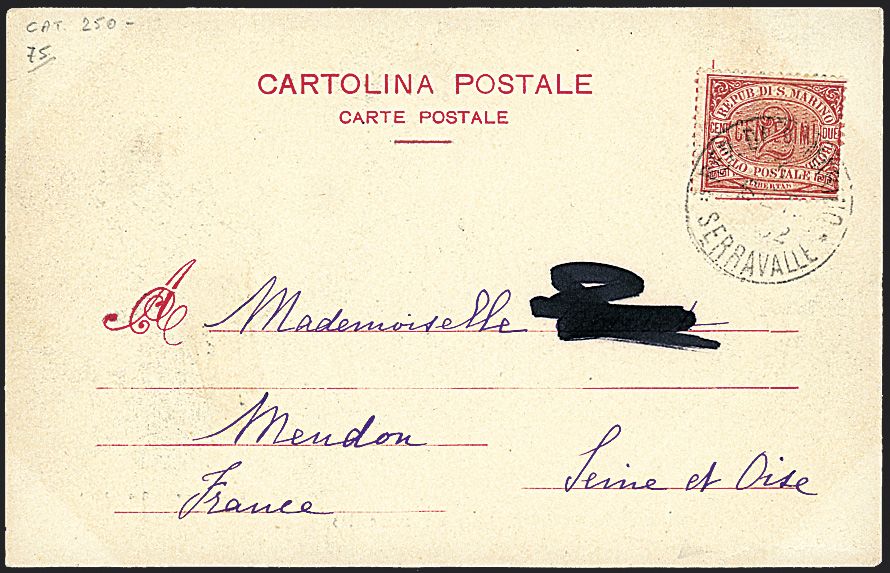 CAT. 250-
75
CARTOLINA POSTALE
CARTE POSTALE
REPUB. DI S. MARINO
CENT 2 DUE
CENTESIMI
BOLLO POSTALE
LIBERTAS
SERRAVALLE
A Mademoiselle
Meudon
Seine et Oise
France